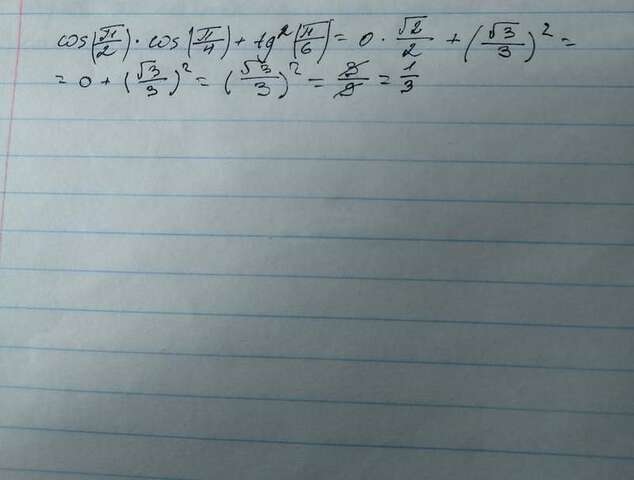 cos(π/2) · cos(π/4) + tg²(π/6) = 0 · √2/2 + (√3/3)² =
= 0 + (√3/3)² = (√3/3)² = 3/9 = 1/3